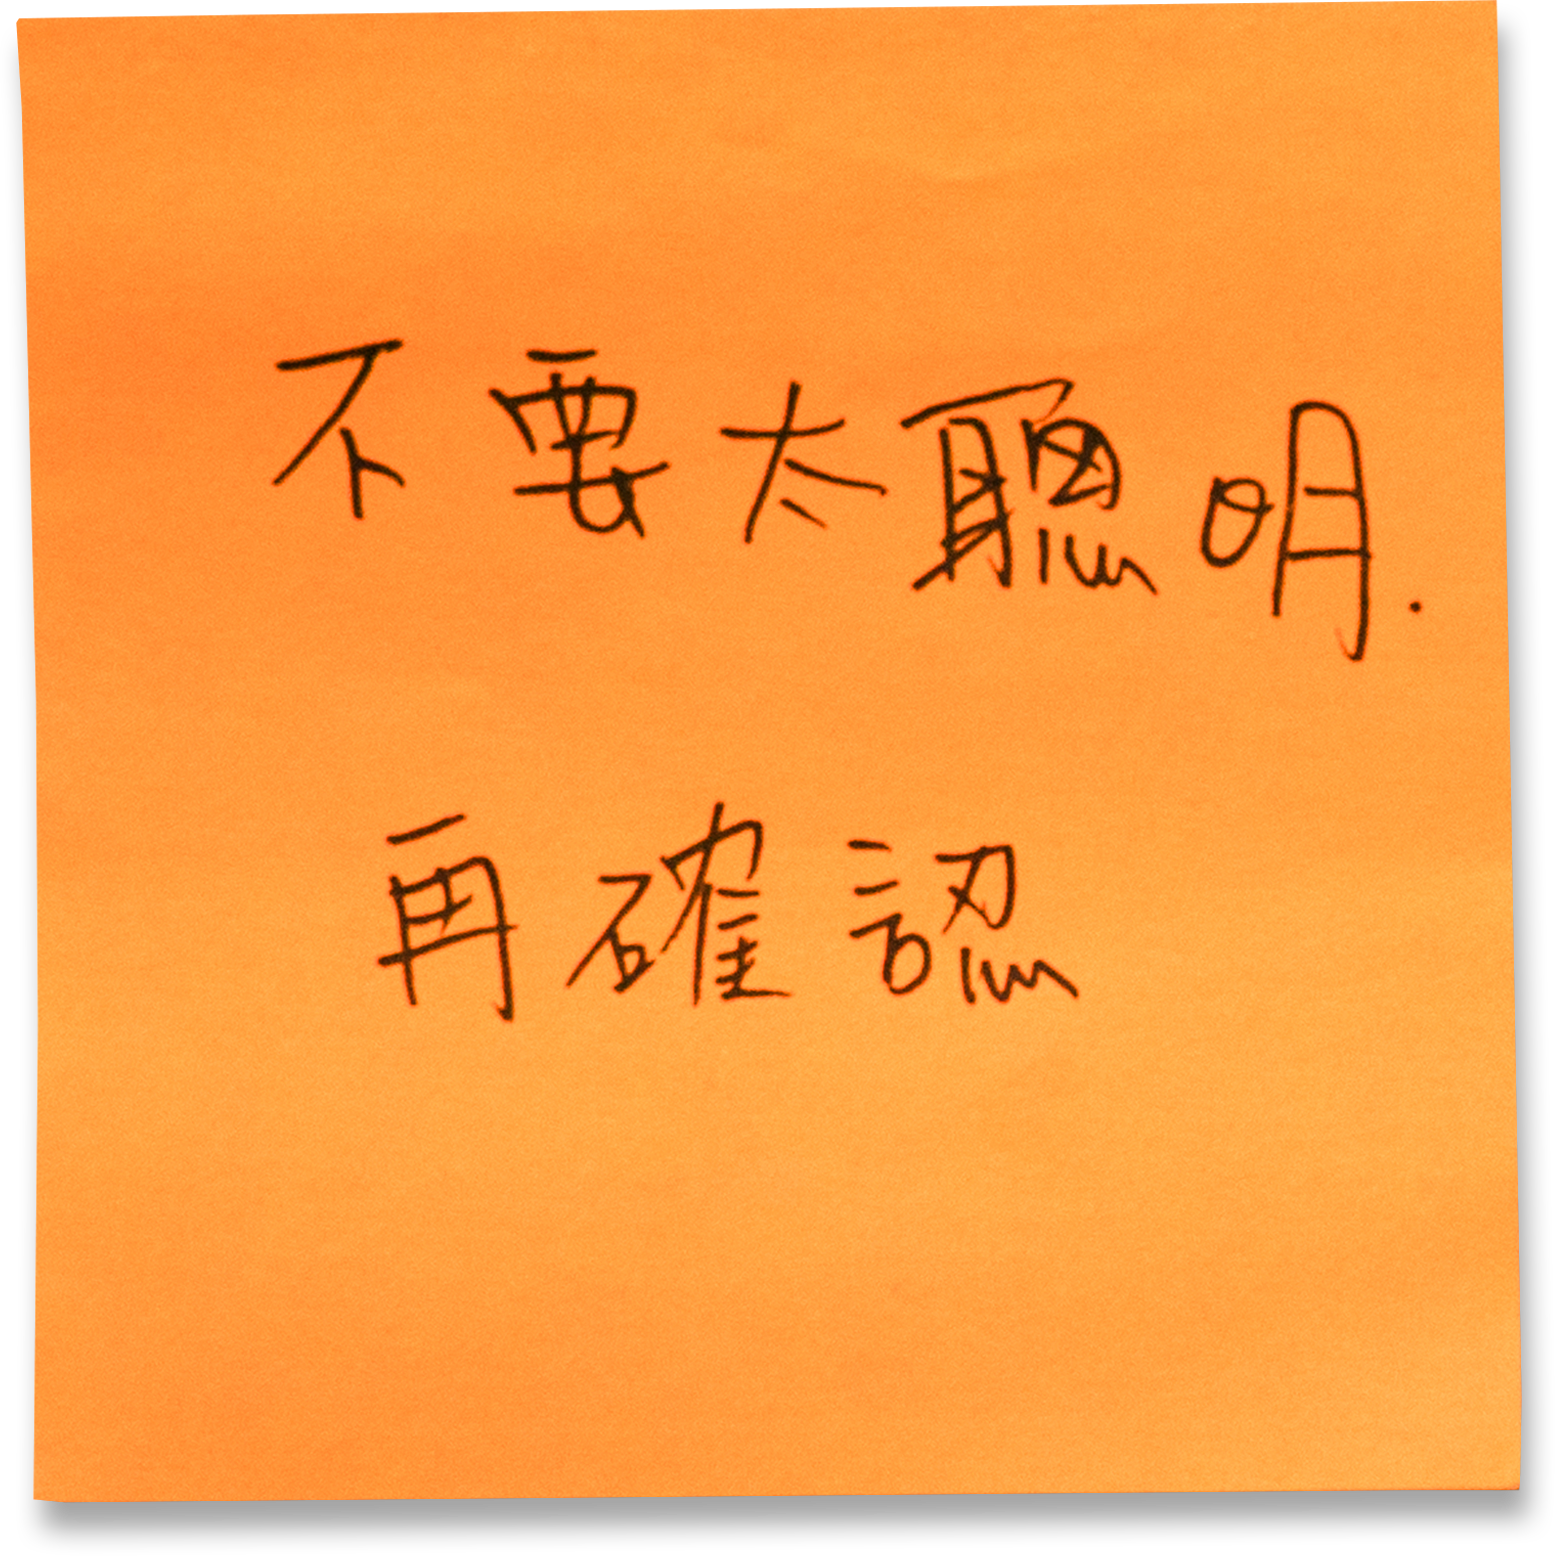 不要太聰明.
再確認